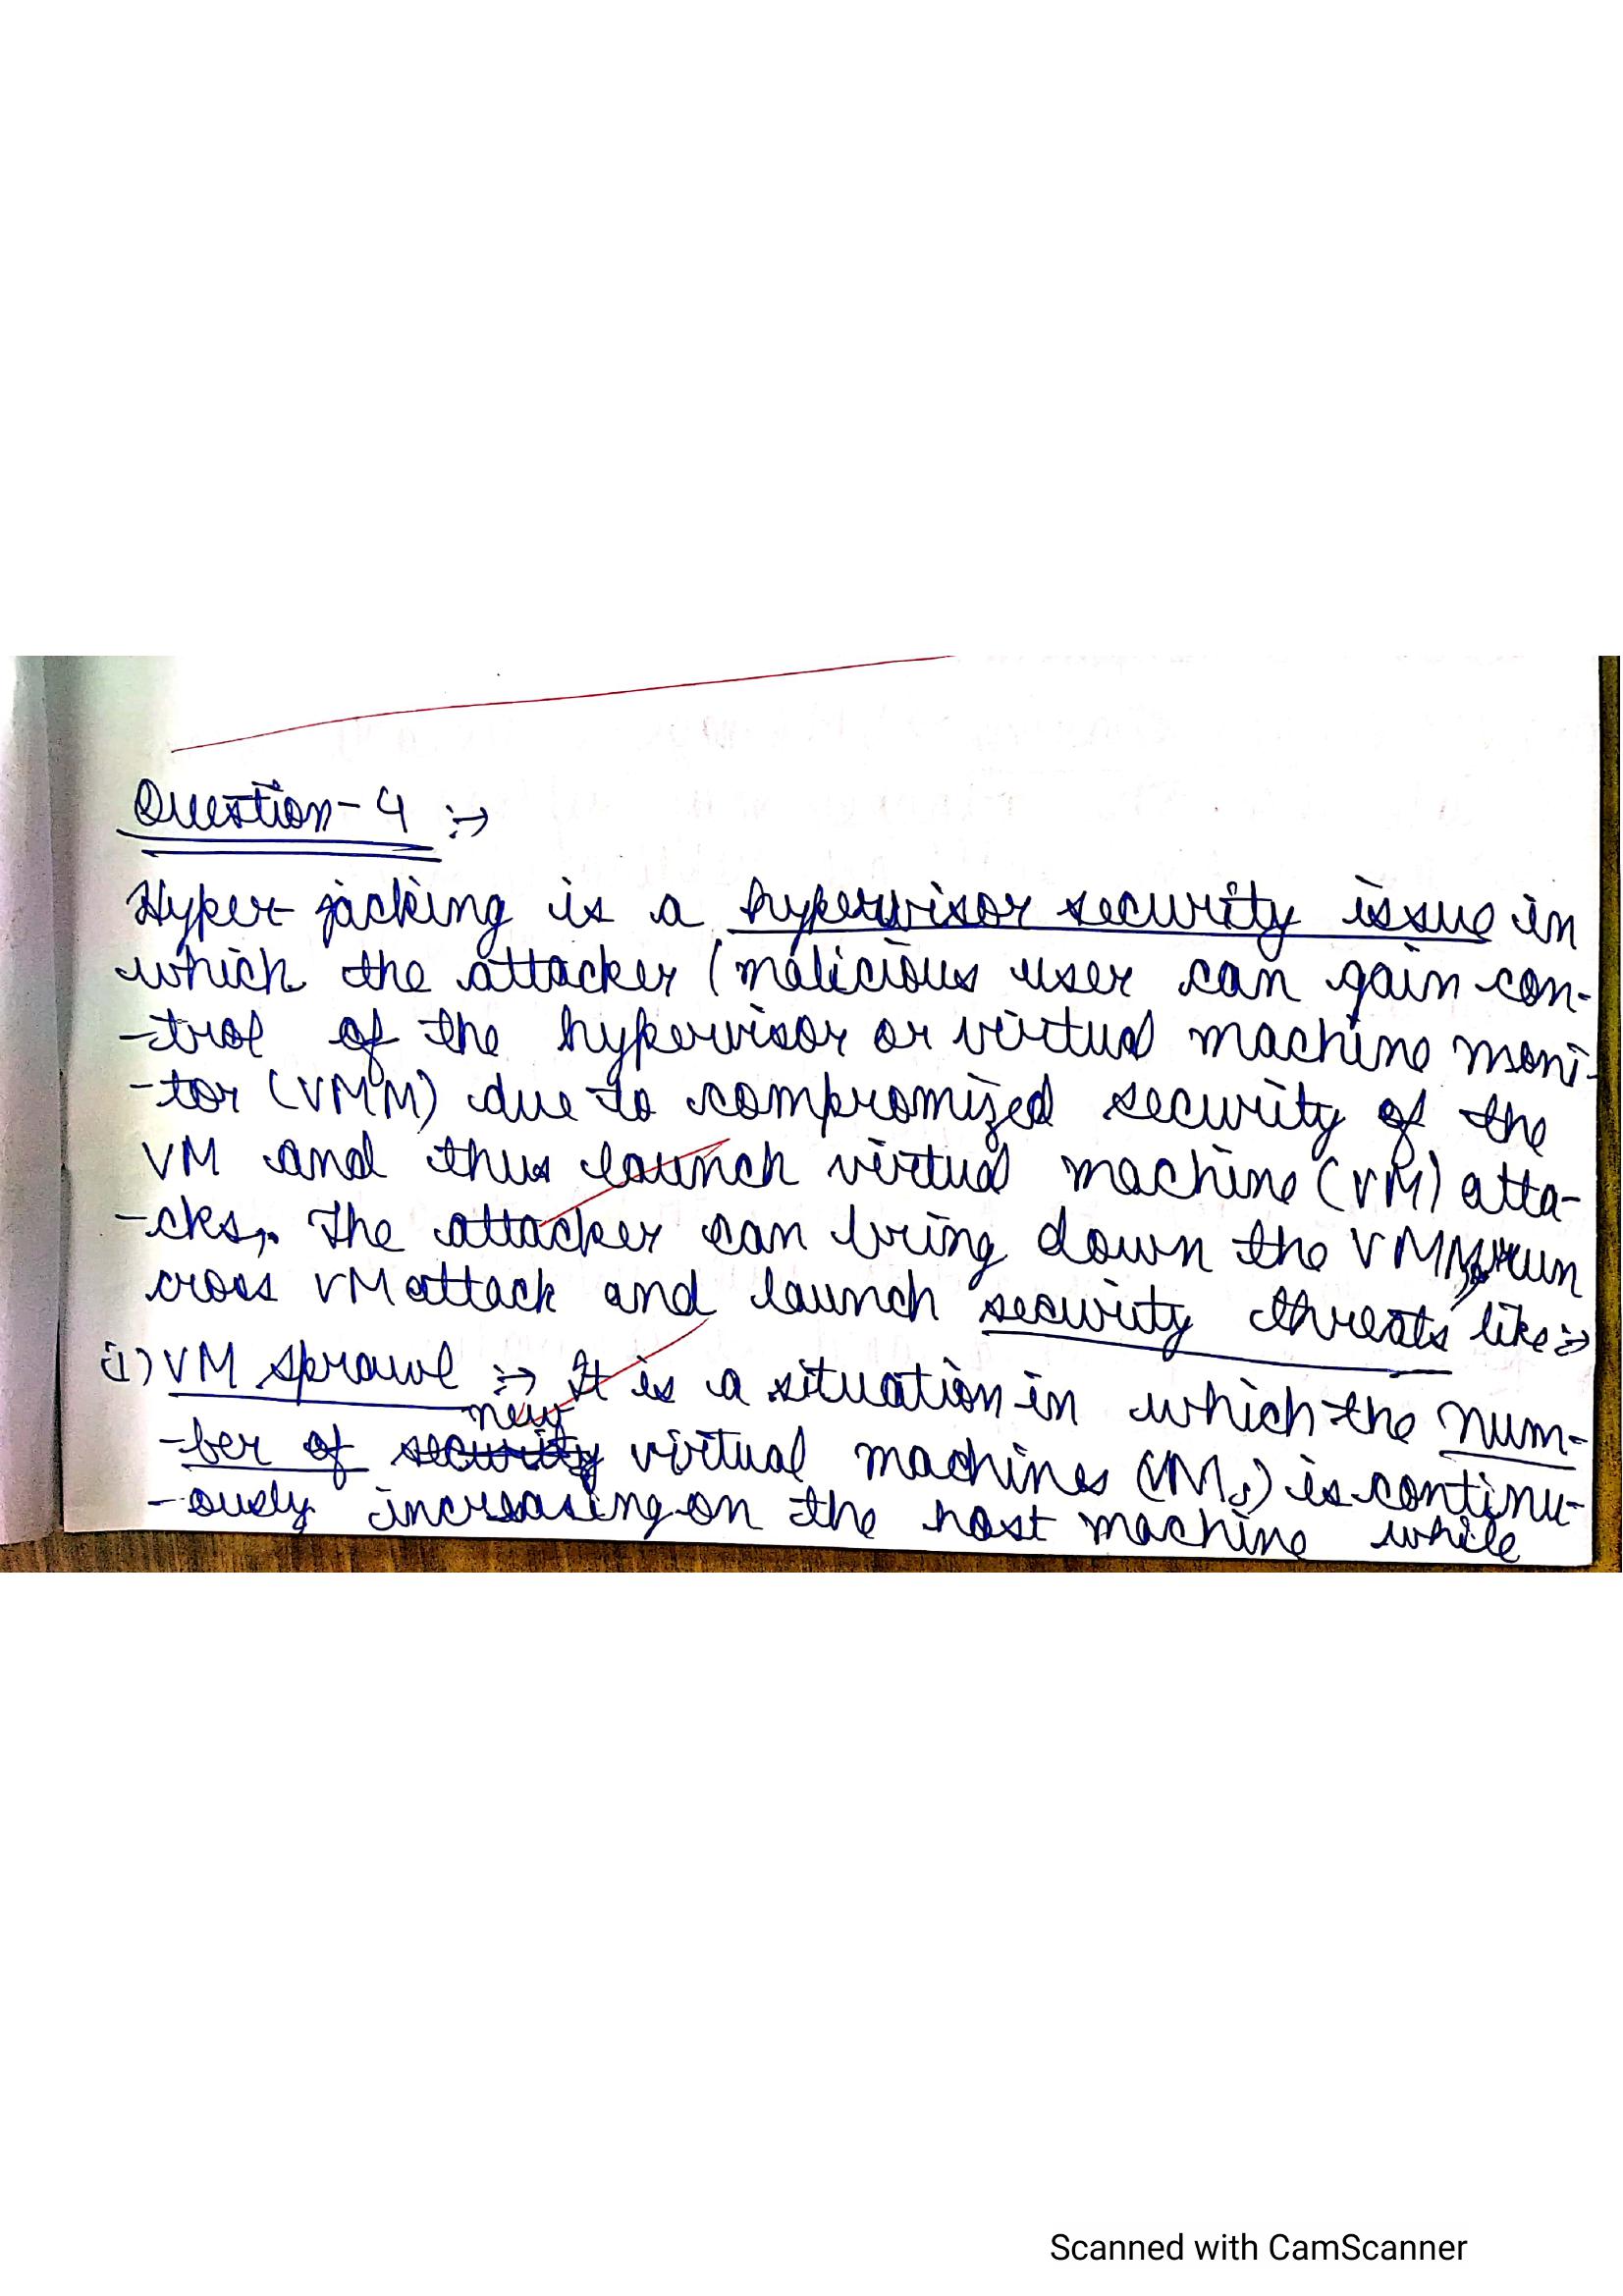 Question-4 :→
Hyper-jacking is a hypervisor security issue in
which the attacker (malicious user can gain con-
-trol of the hypervisor or virtual machine moni-
-tor (VMM) due to compromized security of the
VM and thus launch virtual machine (VM) atta-
-cks,. The attacker can bring down the VMM, run
cross VM attack and launch security threats like :→
(i) VM sprawl :→ It is a situation in which the num-
new
-ber of security virtual machines (VMs) is continu-
-ously increasing on the host machine while
Scanned with CamScanner